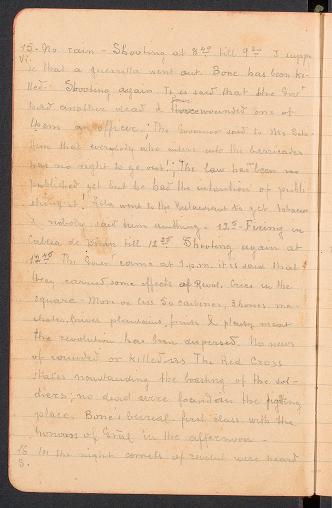 15. No rain - Shooting at 8 till 9 I suppo
Vi.
se that a guerrilla went out. Bone has been ki-
lled. Shooting again. It is said that the Govt
had another dead & wounded one of
them an officer. The Governor said to Mrs
that everybody who enters into the barricades
has no right to go out! The law has been no
published yet but he has the intention of publi-
shing it! went to the Restaurant to get tobacco
& nobody said him anything. 12 Firing in
de till 12 Shooting again at
12 The come at 1 p.m. it is said that
they carried some effects of Revol. Crees in the
square. More or less 50 carbines, 3 horses, ma-
chetes, plantains, fruits & plenty meat
the revolution has been dispersed. No news
of wounded or killed. The Red Cross
states the boasting of the sol-
diers; no dead were found in the fighting
place. Bone's burreal first class with the
honours of Gral in the afternoon -
16 In the night cornets of were heard
S.